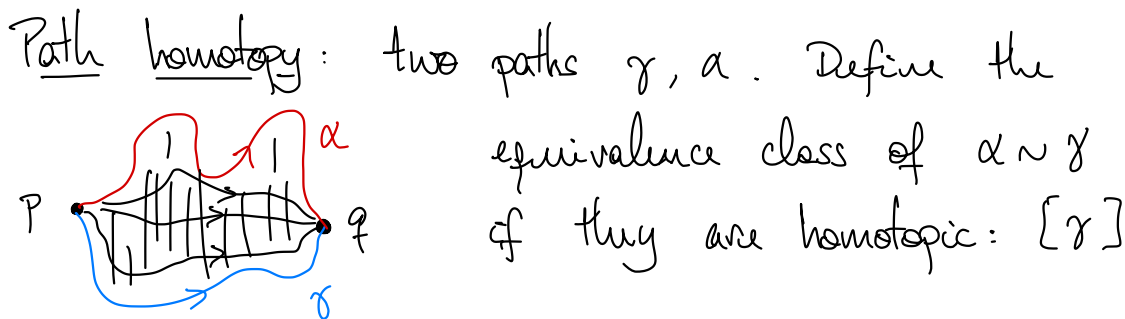 Path homotopy: two paths γ, α. Define the
equivalence class of α ~ γ
if they are homotopic: [γ]
α
p
q
γ